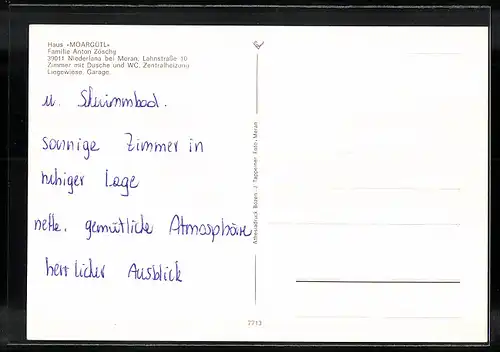 Haus «MOARGÜTL»
Familie Anton Zöschg
39011 Niederlana bei Meran, Lahnstraße 10
Zimmer mit Dusche und WC, Zentralheizung
Liegewiese, Garage.
u. Schwimmbad.
sonnige Zimmer in
ruhiger Lage
nette, gemütliche Atmosphäre
herrlicher Ausblick
Athesiadruck Bozen - J. Tappeiner Foto, Meran
7713